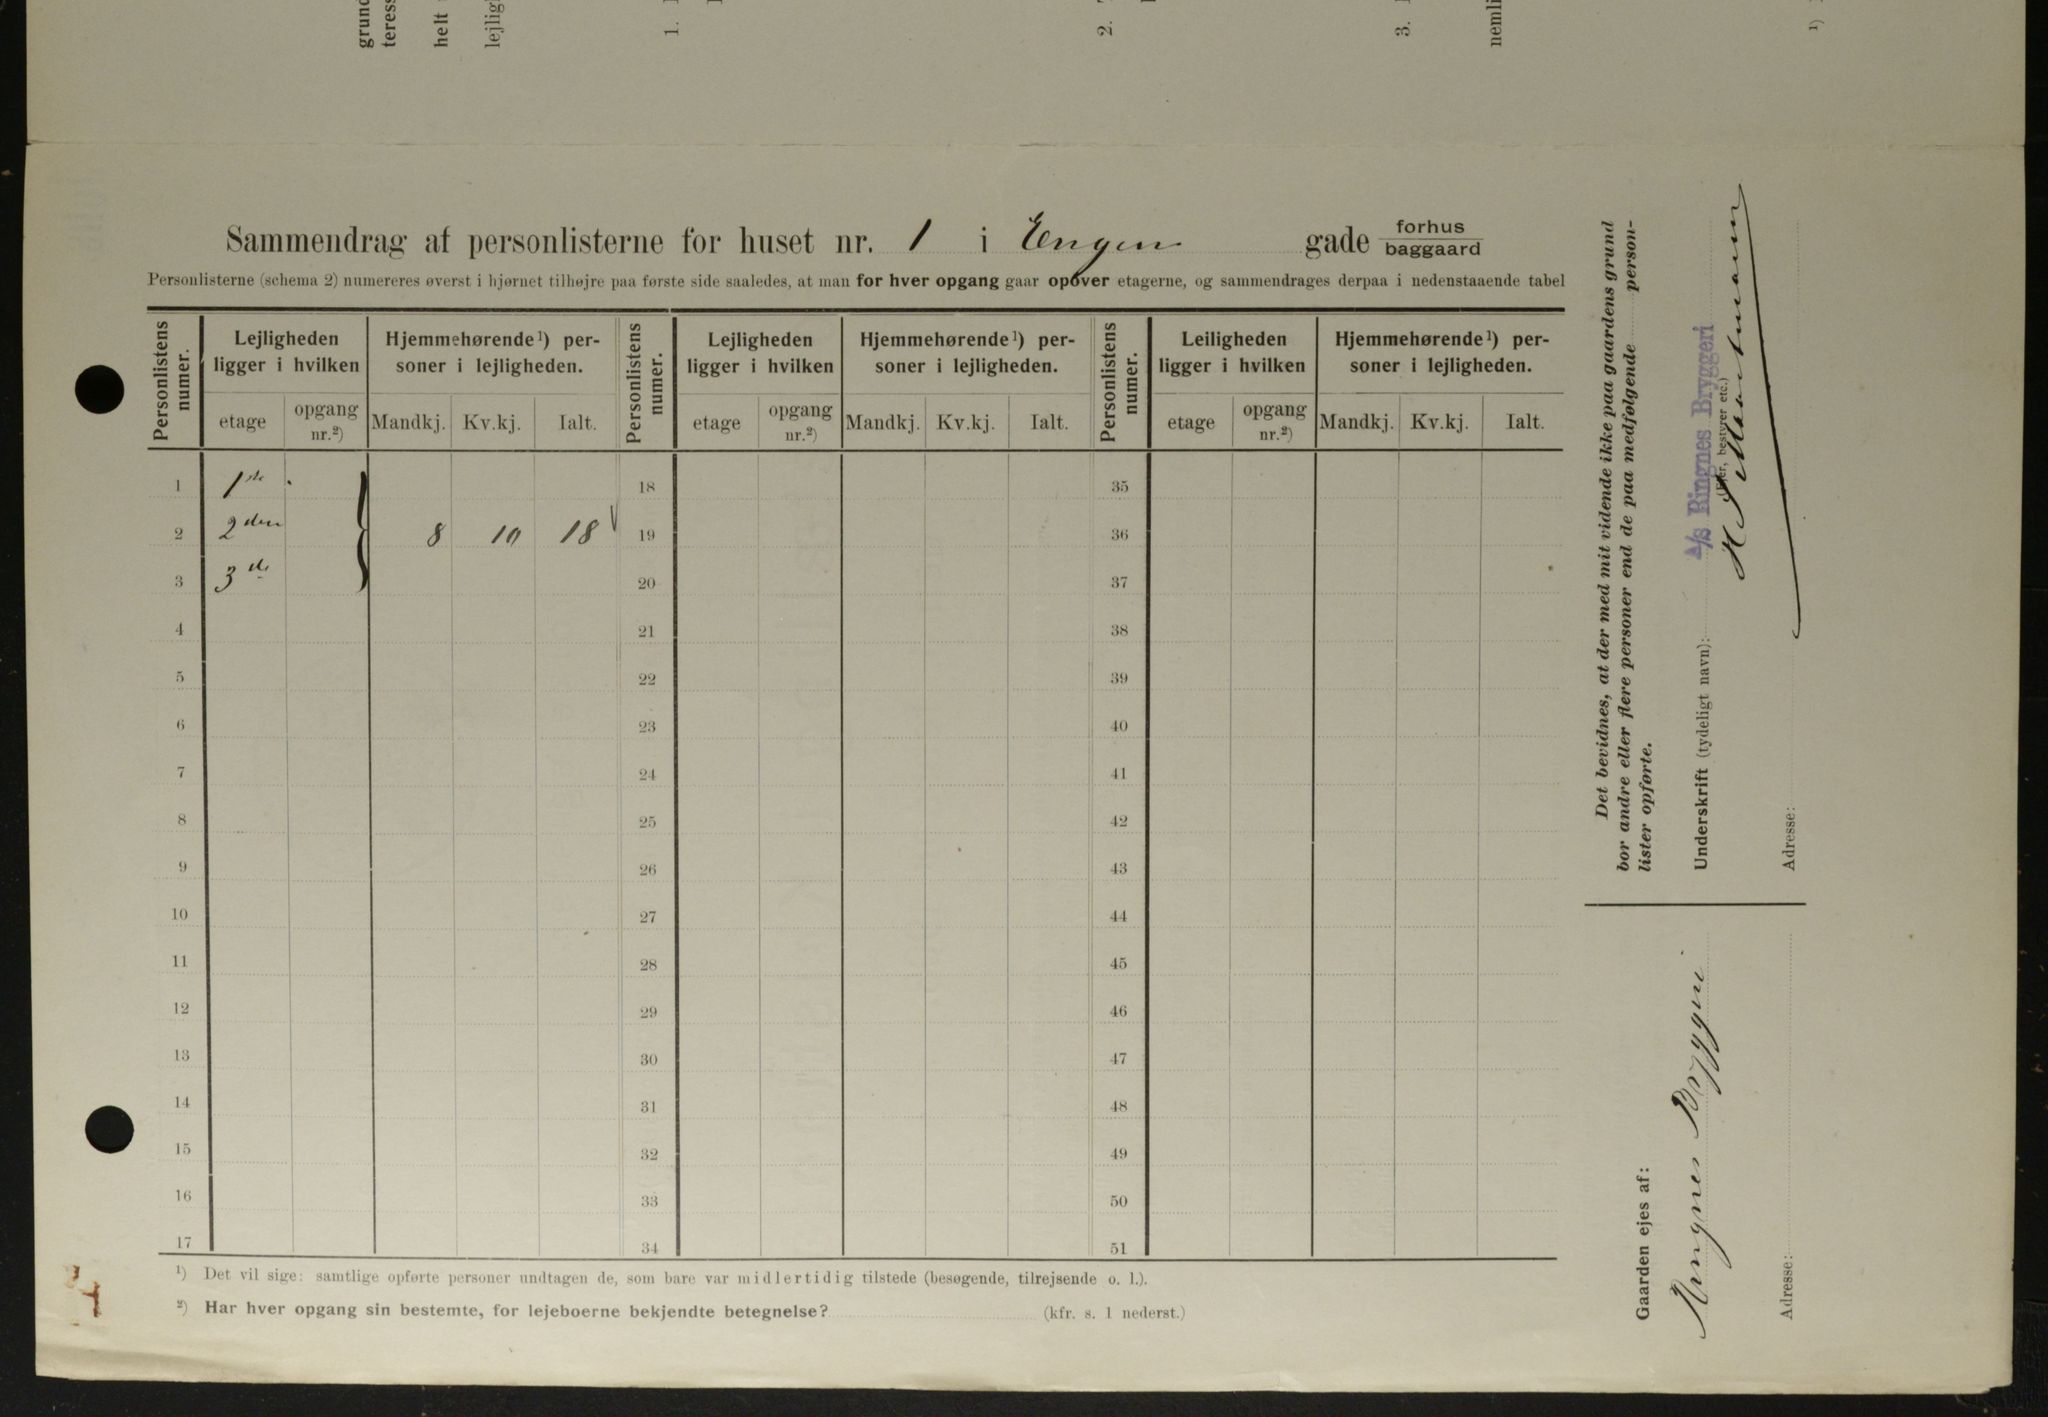 grund
teress
helt
lejligh
1.
2.
3.
nemli
1)
Sammendrag af personlisterne for huset nr. 1 i Engen gade forhus
baggaard
Personlisterne (schema 2) numereres øverst i hjørnet tilhøjre paa første side saaledes, at man for hver opgang gaar opover etagerne, og sammendrages derpaa i nedenstaaende tabel
Personlistens numer.
Lejligheden ligger i hvilken
Hjemmehørende¹) personer i lejligheden.
Personlistens numer.
Lejligheden ligger i hvilken
Hjemmehørende¹) personer i lejligheden.
Personlistens numer.
Leiligheden ligger i hvilken
Hjemmehørende¹) personer i lejligheden.
etage opgang nr.²) Mandkj. Kv.kj. Ialt. etage opgang nr.²) Mandkj. Kv.kj. Ialt. etage opgang nr.²) Mandkj. Kv.kj. Ialt.
1 1ste 18 35
2 2den 8 10 18 19 36
3 3de 20 37
4 21 38
5 22 39
6 23 40
7 24 41
8 25 42
9 26 43
10 27 44
11 28 45
12 29 46
13 30 47
14 31 48
15 32 49
16 33 50
17 34 51
¹) Det vil sige: samtlige opførte personer undtagen de, som bare var midlertidig tilstede (besøgende, tilrejsende o. l.).
²) Har hver opgang sin bestemte, for lejeboerne bekjendte betegnelse? (kfr. s. 1 nederst.)
Det bevidnes, at der med mit vidende ikke paa gaardens grund
bor andre eller flere personer end de paa medfølgende person-
lister opførte.
Underskrift (tydeligt navn):
A/S Ringnes Bryggeri
(Ejer, bestyrer etc.)
Adresse:
Gaarden ejes af:
Ringnes Bryggeri
Adresse: